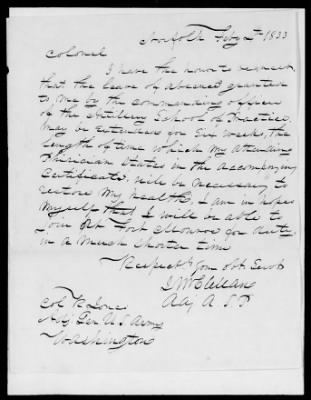 Norfolk Feby 2d 1833
Colonel
I have the honor to request
that the leave of absence granted
to me by the commanding officer
of the Artillery School of Practice
may be extended for Six weeks, the
length of time which my attending
Phisician States in the accompanying
certificate, will be necessary to
restore my health, I am in hopes
myself that I will be able to
join at Fort Monroe for duty
in a much shorter time
Respect. your obt Servt
J McClellan
Adj A. S. P.
Col R Jones
Adj Gen U S Army
Washington